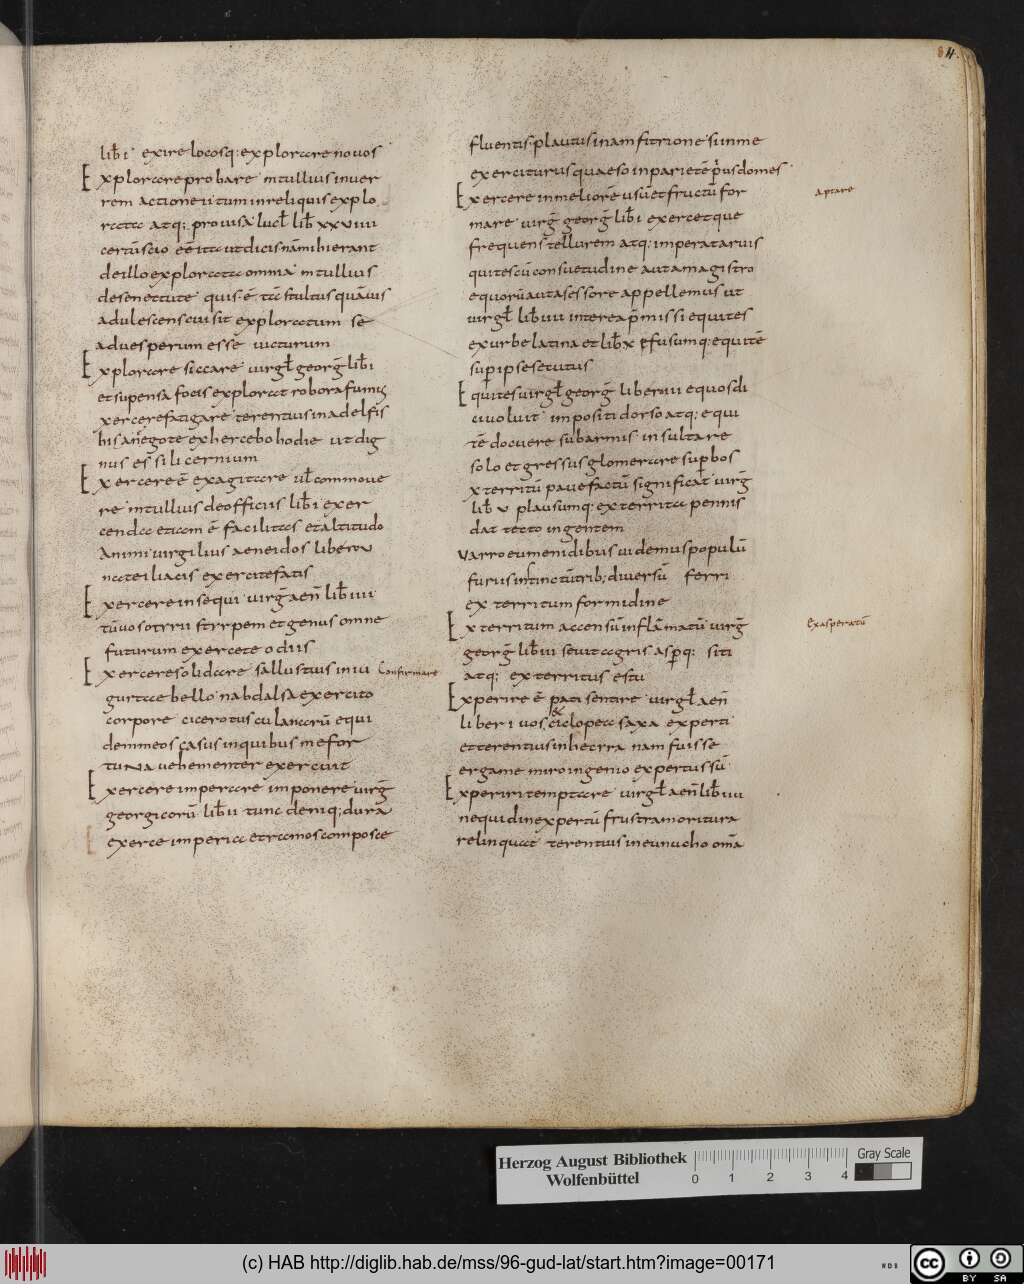 84.
lib̄ i exire locosq; explorare novos
Explorare probare m tullius in ver
rem actione ii tum in reliquis explo
rata atq; provisa lucł lib̄ xxviiii
certū scio eē ita ut dicis nā mihi erant
de illo explorata omnia m tullius
de senectute quis ē tā stultus quāvis
adulescens cui sit exploratum se
ad vesperum esse victurum
Explorare siccare virgł georḡ lib̄ i
et supensa focis explorat robora fumus
xercere fatigare terentius in adelfis
his ańe gote exhercebo hodie ut dig
nus es silicernium
Exercere ē exagitare uł commove
re m tullius de officiis lib̄ i exer
cenda etiam ē facilitas et altitudo
Animi virgilius aeneidos libero v
nate iliacis exercite fatis
Exercere insequi virḡ aen̄ lib̄ iiii
tū vos o tyrii stirpem et genus omne
futurum exercete odiis
Exercere solidare sallustius in iu
Confirmare
gurtae bello nabdalsa exercito
corpore cicero tusculanarū equi
dem meos casus in quibus me for
tuna vehementer exercuit
Exercere imperare imponere virḡ
georgicorū lib̄ ii tunc deniq; dura
exerce imperia et ramos compesce
fluentis plautus in amfitrione sum me
exerciturus quaeso in parietē p̄us domes
Exercere in meliorē usū et fructū for
aptare
mare virḡ georḡ lib̄ i exercetque
frequens tellurem atq; imperat arvis
equorū aut asessore appellemus ut
virgł lib̄ viiii interea p̄missi equites
ex urbe latina et lib̄ x effusumq; equitē
sup ipse secutus
Equites virgł georḡ liber iii equos di
cuo luit impositi dorso atq; equi
tē docuere sub armis insultare
solo et gressus glomerare supbos
xterritū pavefactū significat virḡ
lib̄ v plausumq; exterrita pennis
dat tecto ingentem
Varro eumenidibus videmus populū
furiis instinctū trib; diversū ferri
exterritum formidine
Exterritum accensū inflāmatū virḡ
Exasperatū
georḡ lib̄ iii sevit agris asperq; siti
atq; exterritus estu
Experire ē pati sentire virgł aen̄
liber i vos & ciclopea saxa experti
et terentius in hecyra nam fuisse
erga me miro ingenio expertus sū
Experiri temptare virgł aen̄ lib̄ iiii
ne quid inexpertū frustra moritura
relinquat terentius in eunucho oma
Herzog August Bibliothek
Wolfenbüttel
0 1 2 3 4
Gray Scale
(c) HAB http://diglib.hab.de/mss/96-gud-lat/start.htm?image=00171
WDB
cc BY SA